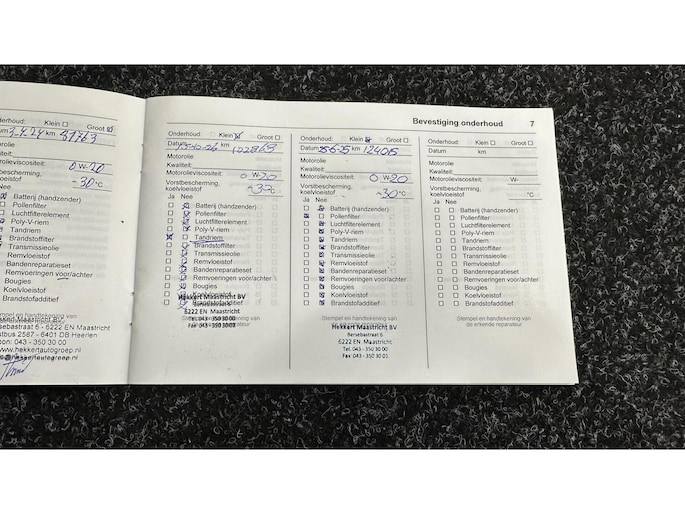 Bevestiging onderhoud 7
Klein Groot
3-4-24 km
orie
teit:
osviscositeit: 0 W-20
escherming,
eistof -30 °C
Nee
Batterij (handzender)
Pollenfilter
Luchtfilterelement
Poly-V-riem
Tandriem
Brandstoffilter
Transmissieolie
Remvloeistof
Bandenreparatieset
Remvoeringen voor/achter
Bougies
Koelvloeistof
Brandstofadditief
empel en handtekening van
Hekkert Maastricht BV
sebastraat 6 - 6222 EN Maastricht
tbus 2587 - 6401 DB Heerlen
oon: 043 - 350 30 00
www.hekkertautogroep.nl
Onderhoud: Klein Groot
Datum km
Motorolie
Kwaliteit:
Motorolieviscositeit: 0 W-20
Vorstbescherming,
koelvloeistof °C
Ja Nee
Batterij (handzender)
Pollenfilter
Luchtfilterelement
Poly-V-riem
Tandriem
Brandstoffilter
Transmissieolie
Remvloeistof
Bandenreparatieset
Remvoeringen voor/achter
Bougies
Koelvloeistof
Brandstofadditief
Hekkert Maastricht BV
Bersebastraat 6
6222 EN Maastricht
Tel. 043 - 350 30 00
Fax 043 - 350 30 03
Onderhoud: Klein Groot
Datum km 124015
Motorolie
Kwaliteit:
Motorolieviscositeit: 0 W-20
Vorstbescherming,
koelvloeistof -30 °C
Ja Nee
Batterij (handzender)
Pollenfilter
Luchtfilterelement
Poly-V-riem
Tandriem
Brandstoffilter
Transmissieolie
Remvloeistof
Bandenreparatieset
Remvoeringen voor/achter
Bougies
Koelvloeistof
Brandstofadditief
Stempel en handtekening van
Hekkert Maastricht BV
Bersebastraat 6
6222 EN Maastricht
Tel. 043 - 350 30 00
Fax 043 - 350 30 03
Onderhoud: Klein Groot
Datum km
Motorolie
Kwaliteit:
Motorolieviscositeit: W-
Vorstbescherming,
koelvloeistof °C
Ja Nee
Batterij (handzender)
Pollenfilter
Luchtfilterelement
Poly-V-riem
Tandriem
Brandstoffilter
Transmissieolie
Remvloeistof
Bandenreparatieset
Remvoeringen voor/achter
Bougies
Koelvloeistof
Brandstofadditief
Stempel en handtekening van
de erkende reparateur